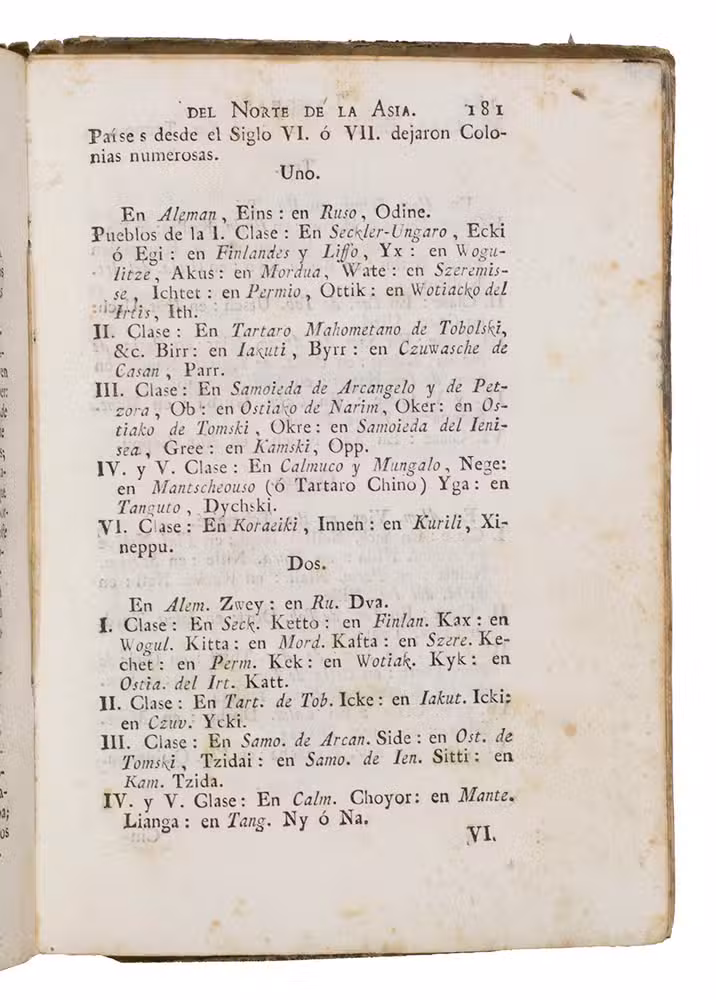 DEL NORTE DE LA ASIA. 181
Paises desde el Siglo VI. ó VII. dejaron Colo-
nias numerosas.
Uno.
En Aleman, Eins: en Ruso, Odine.
Pueblos de la I. Clase: En Seckler-Ungaro, Ecki
ó Egi: en Finlandes y Liffo, Yx: en Wogu-
litze, Akus: en Mordua, Wate: en Szeremis-
se, Ichtet: en Permio, Ottik: en Wotiacko del
Irtis, Ith.
II. Clase: En Tartaro Mahometano de Tobolski,
&c. Birr: en Iakuti, Byrr: en Czuwasche de
Casan, Parr.
III. Clase: En Samoieda de Arcangelo y de Pet-
zora, Ob: en Ostiako de Narim, Oker: en Os-
tiako de Tomski, Okre: en Samoieda del Ieni-
sea, Gree: en Kamski, Opp.
IV. y V. Clase: En Calmuco y Mungalo, Nege:
en Mantscheouso (ó Tartaro Chino) Yga: en
Tanguto, Dychski.
VI. Clase: En Koraeiki, Innen: en Kurili, Xi-
neppu.
Dos.
En Alem. Zwey: en Ru. Dva.
I. Clase: En Seck. Ketto: en Finlan. Kax: en
Wogul. Kitta: en Mord. Kafta: en Szere. Ke-
chet: en Perm. Kek: en Wotiak. Kyk: en
Ostia. del Irt. Katt.
II. Clase: En Tart. de Tob. Icke: en Iakut. Icki:
en Czuv. Ycki.
III. Clase: En Samo. de Arcan. Side: en Ost. de
Tomski, Tzidai: en Samo. de Ien. Sitti: en
Kam. Tzida.
IV. y V. Clase: En Calm. Choyor: en Mante.
Lianga: en Tang. Ny ó Na.
VI.